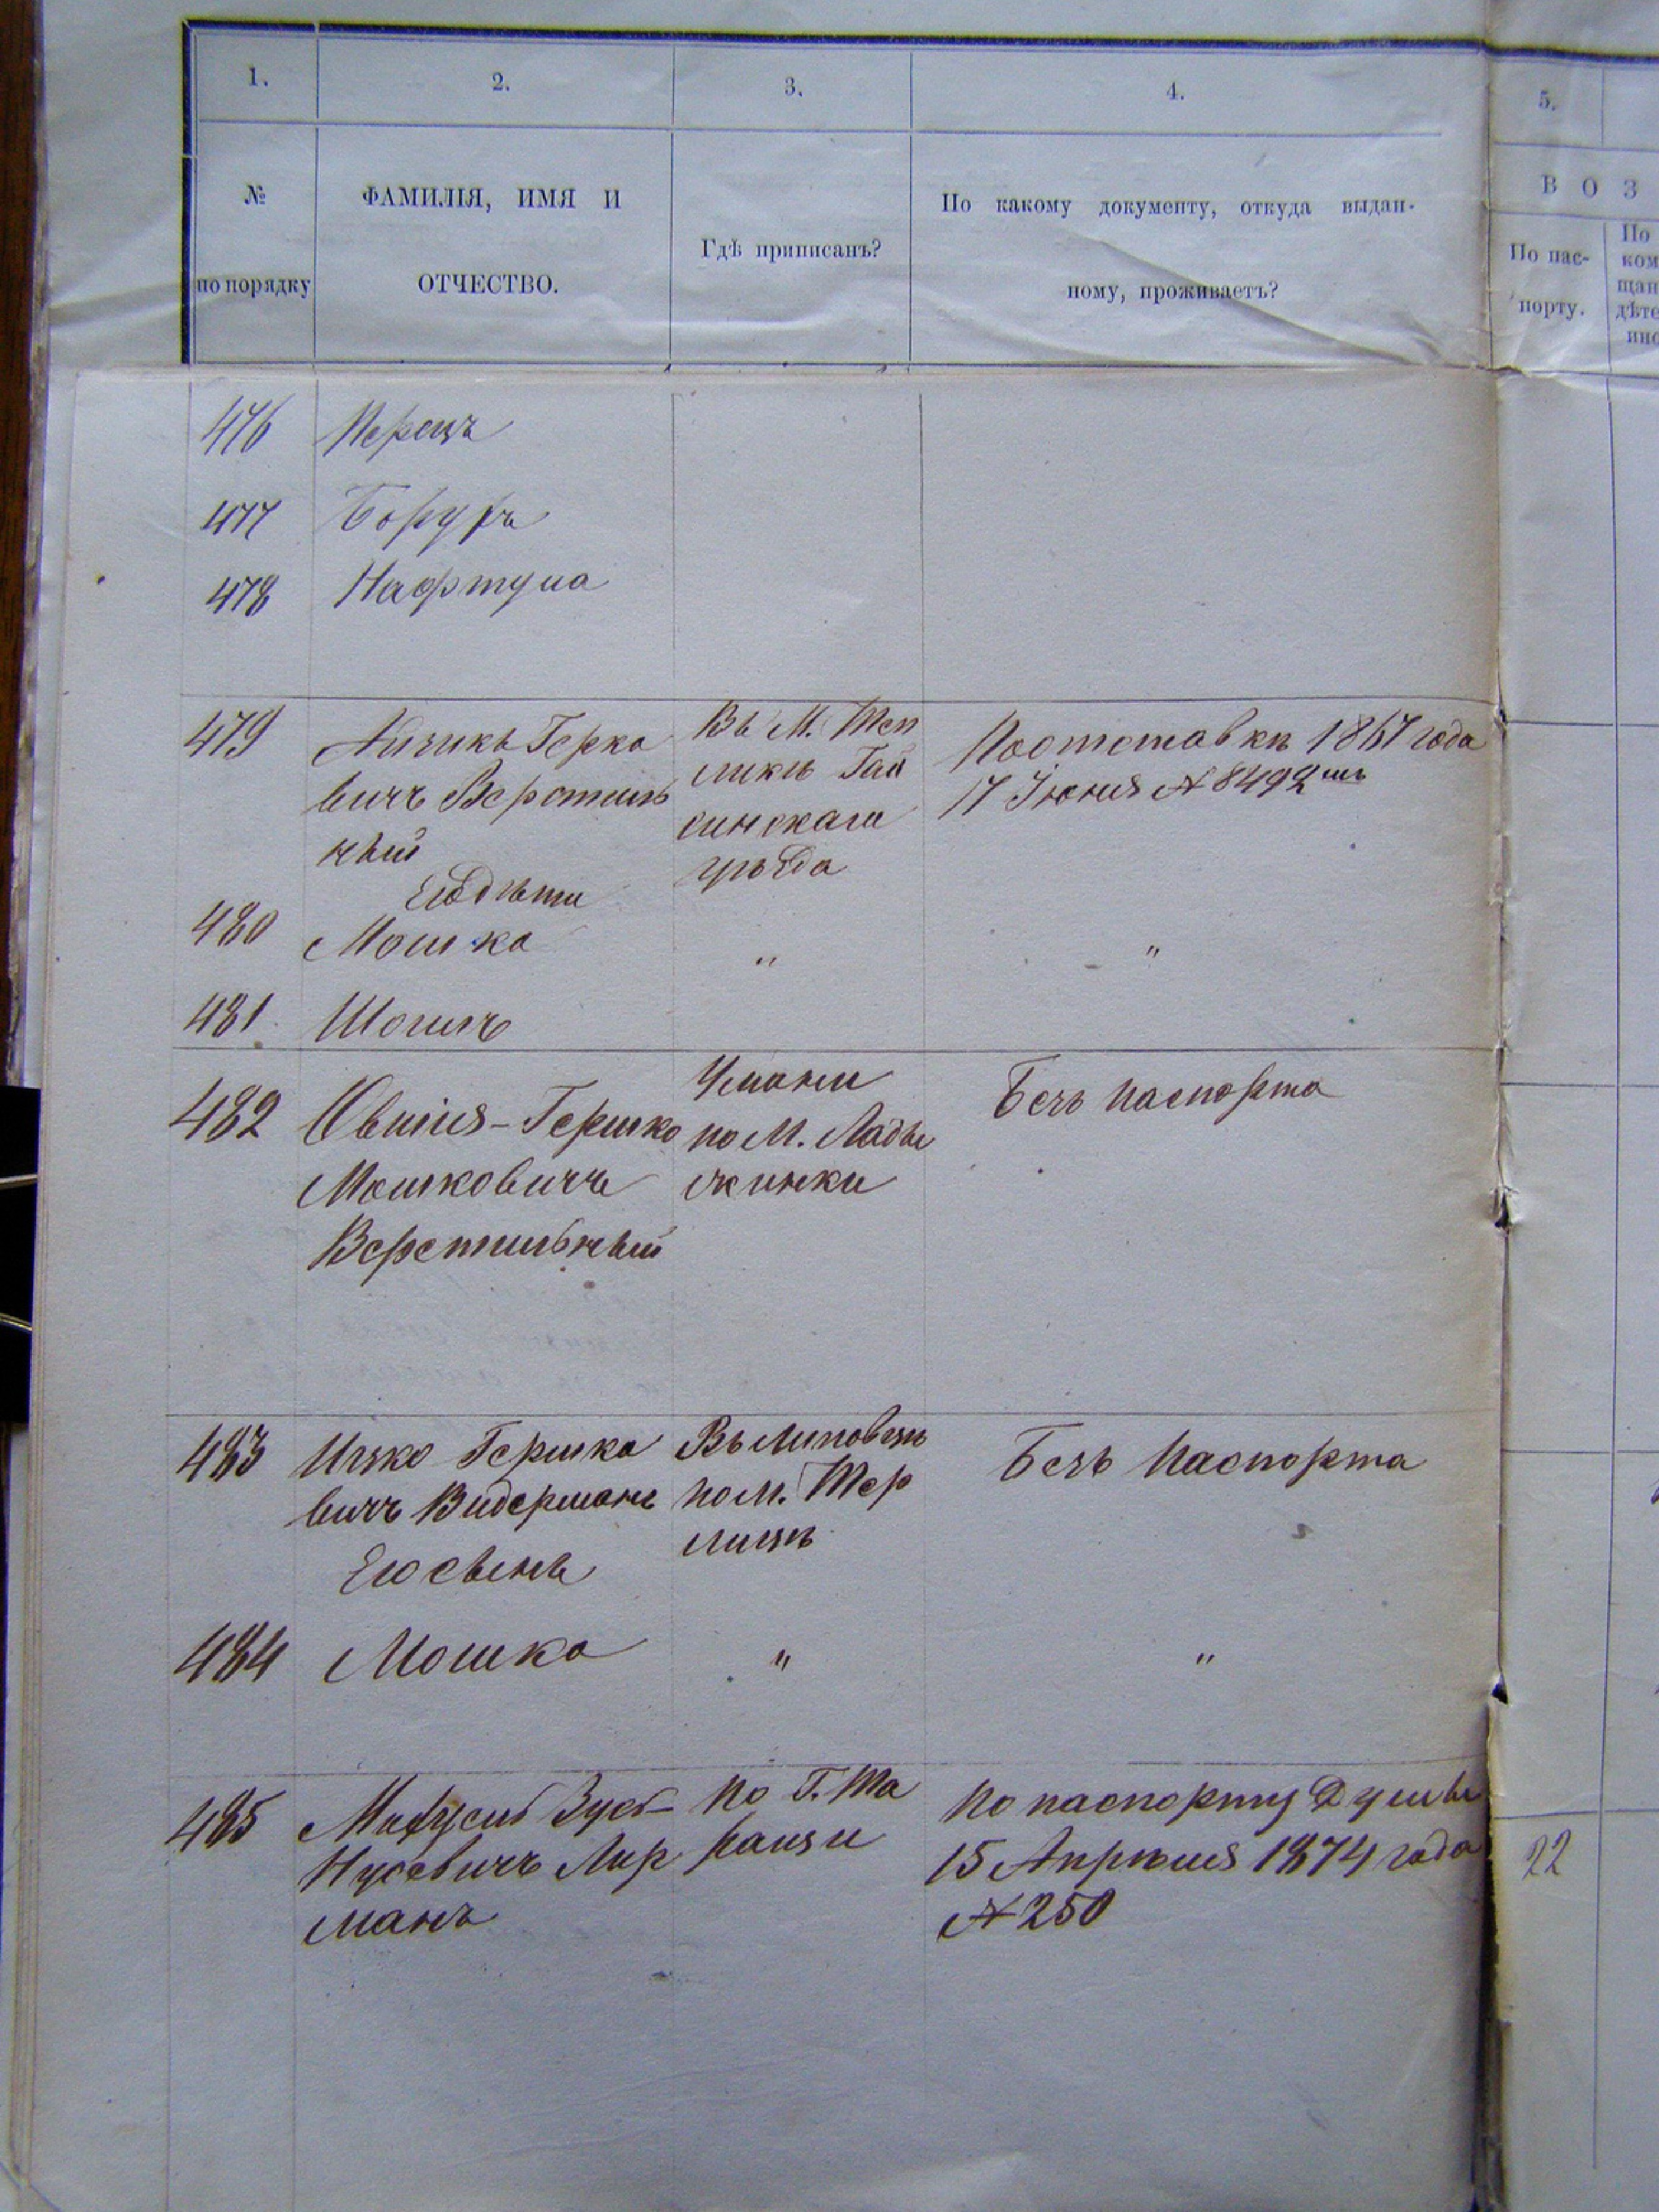 1.
2.
3.
4.
5.
№
по порядку
ФАМИЛІЯ, ИМЯ И
ОТЧЕСТВО.
Гдѣ приписанъ?
По какому документу, откуда выдан-
ному, проживаетъ?
В О З
По пас-
порту.
По
ком
щан
дѣте
ино
476 Перецъ
477 Борухъ
478 Нафтула
479 Ицикъ Герко
вичъ Веротиль
ный
Въ М. Теп
ликѣ Гай
синскаго
уѣзда
По отставкѣ 1867 года
17 Іюня № 8492
Его дѣти
480 Мошко " "
481 Шоилъ
482 Овшія-Гершко
Мошковичъ
Веретильный
Умани
по М. Лады
жинки
Безъ паспорта
483 Ицко Гершко
вичъ Видерманъ
Въ Липовцѣ
по М. Тер
лицѣ
Безъ Паспорта
Его сынъ
484 Мошко " "
485 Зус-
Нусевичъ Лир
манъ
По Г. Та
ращи
По паспорту Думы
15 Апрѣля 1874 года
№ 250
22